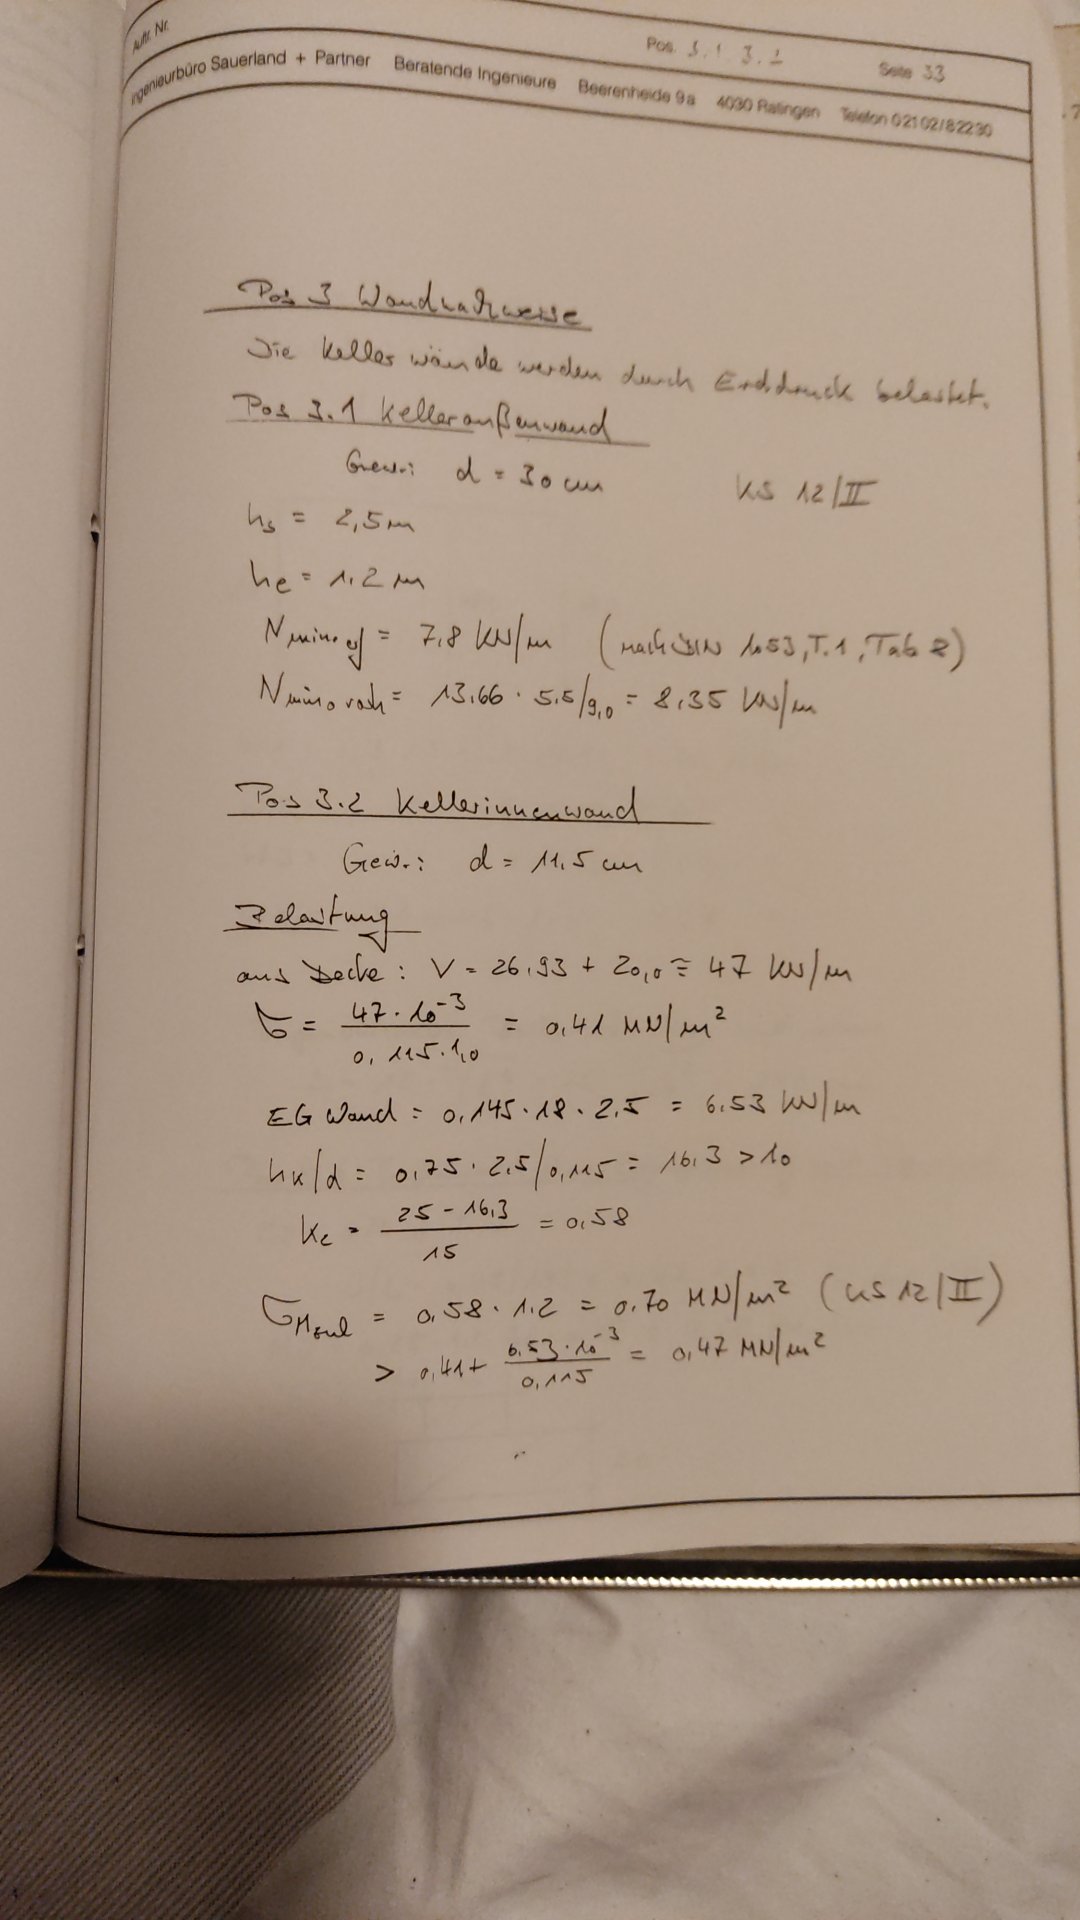 Auftr. Nr.
Pos. 3.1, 3.2
Seite 33
Ingenieurbüro Sauerland + Partner Beratende Ingenieure Beerenheide 9a 4030 Ratingen Telefon 02102/82230
Pos 3 Wandnachweise
Die Kellerwände werden durch Erddruck belastet.
Pos 3.1 Kelleraußenwand
Gew.: d = 30 cm KS 12/II
hs = 2,5 m
he = 1,2 m
N min,erf = 7,8 KN/m (nach DIN 1053, T.1, Tab 8)
N min,vorh = 13,66 · 5,5/9,0 = 8,35 KN/m
Pos 3.2 Kellerinnenwand
Gew.: d = 11,5 cm
Belastung
aus Decke: V = 26,93 + 20,0 ≅ 47 KN/m
σ = 47 · 10⁻³ / 0,115 · 1,0 = 0,41 MN/m²
EG Wand = 0,145 · 18 · 2,5 = 6,53 KN/m
hK/d = 0,75 · 2,5/0,115 = 16,3 > 10
Kc = 25 - 16,3 / 15 = 0,58
σMzul = 0,58 · 1,2 = 0,70 MN/m² (KS 12/II)
> 0,41 + 6,53 · 10⁻³ / 0,115 = 0,47 MN/m²